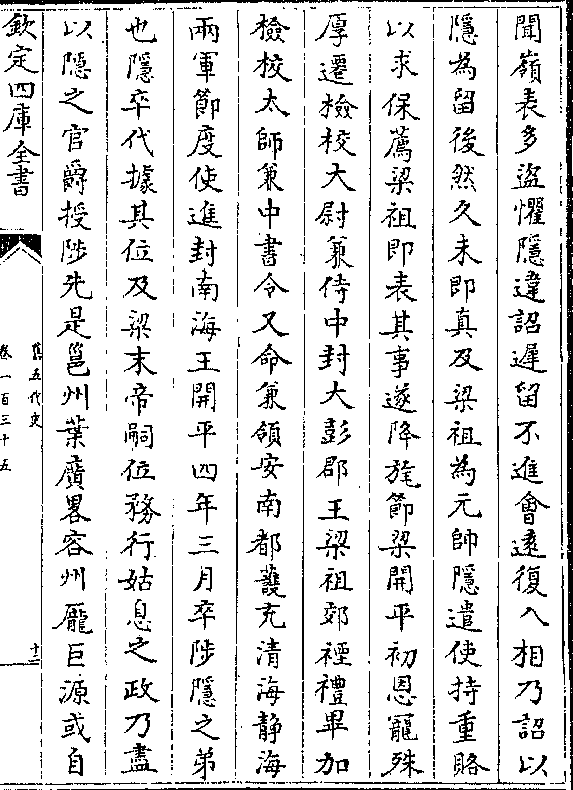 聞嶺表多盜懼隱違詔遲留不進會遠復入相乃詔以
隱為留後然久未即真及梁祖為元帥隱遣使持重賂
以求保薦梁祖即表其事遂降旄節梁開平初恩寵殊
厚遷檢校大尉兼侍中封大彭郡王梁祖郊禋禮畢加
檢校太師兼中書令又命兼領安南都䕶充清海静海
兩軍節度使進封南海王開平四年三月卒陟隱之弟
也隱卒代據其位及梁末帝嗣位務行姑息之政乃盡
以隱之官爵授陟先是邕州葉廣畧容州龎巨源或自
欽定四庫全書
舊五代史
卷一百三十五
十二